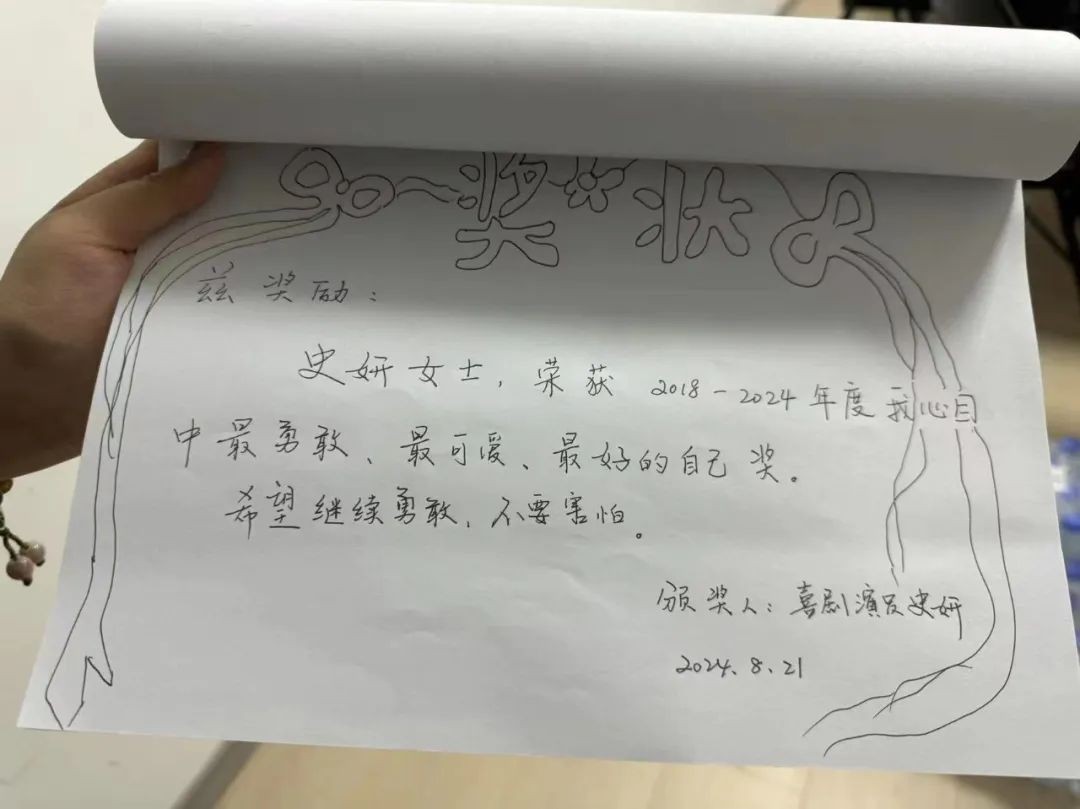 奖状
兹奖励:
史妍女士,荣获 2018-2024年度我心目
中最勇敢、最可爱、最好的自己奖。
希望继续勇敢,不要害怕。
颁奖人:喜剧演员史妍
2024.8.21